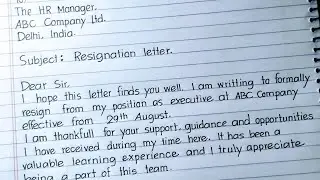 The HR Manager.
ABC Company Ltd.
Delhi, India
Subject: Resignation letter.
Dear Sir,
I hope this letter finds you well. I am writting to formally
resign from my position as executive at ABC Company
effective from 29th August.
I am thankfull for your support, guidance and opportunities
I have received during my time here. It has been a
valuable learning experience, and I truly appreciate
being a part of this team.